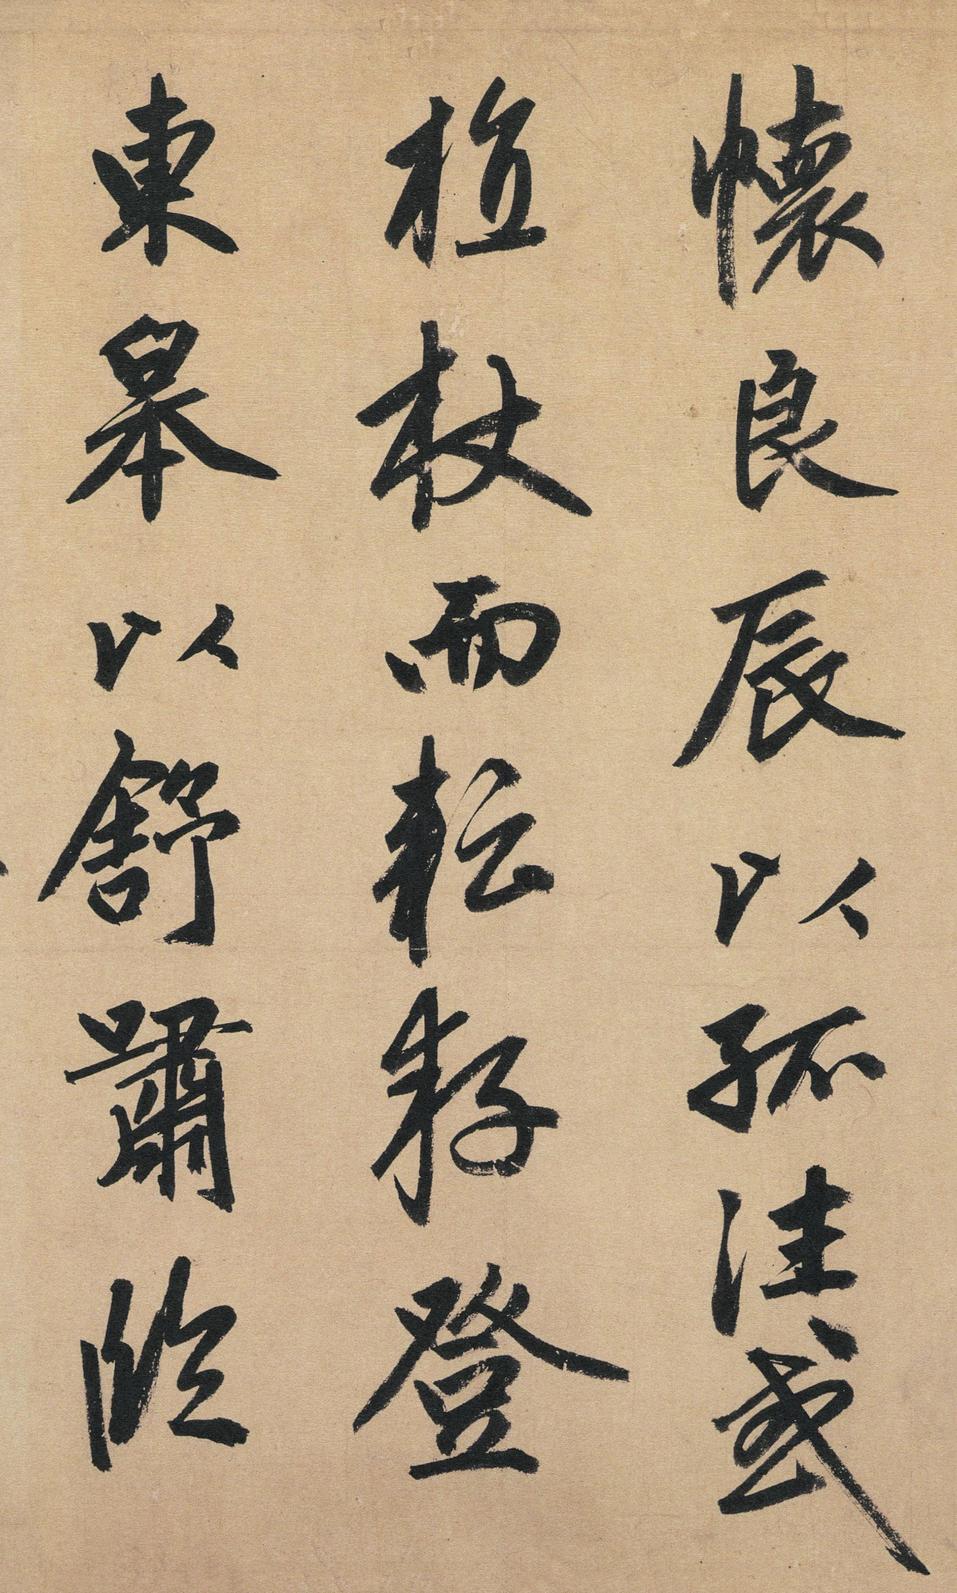 懷良辰以孤往或
植杖而耘耔登
東皋以舒嘯臨